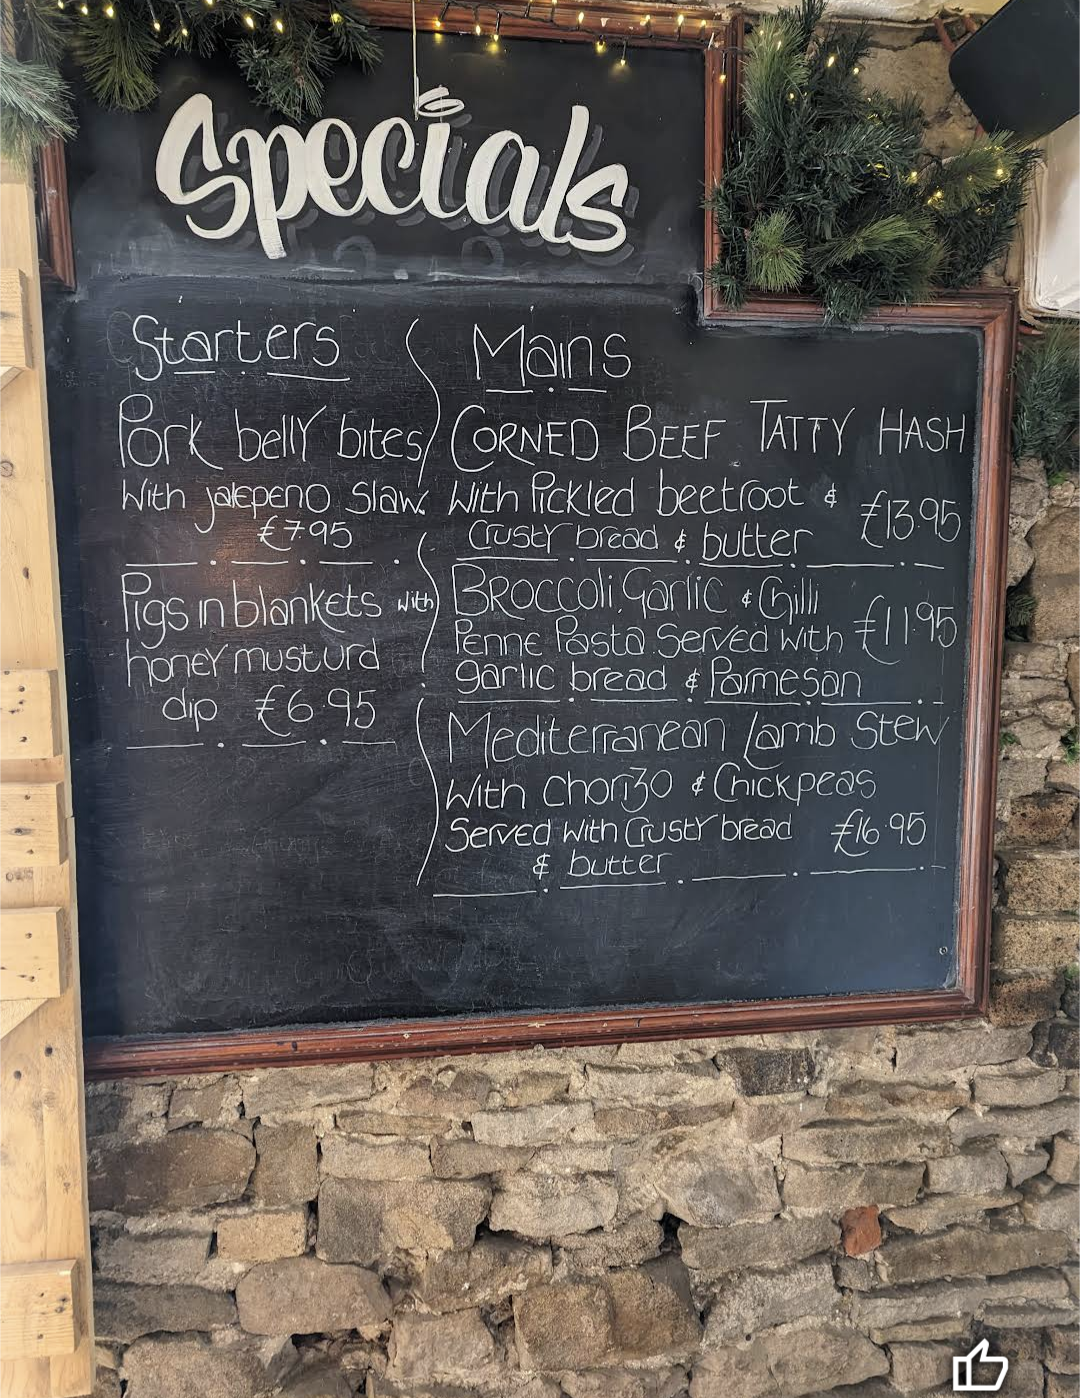 Specials
Starters
Pork belly bites
With jalepeno Slaw.
£7.95
Pigs in blankets with
honey musturd
dip £6.95
Mains
CORNED BEEF TATTY HASH
With Pickled beetroot &
Crusty bread & butter £13.95
BROCCOLI, Garlic & Chilli
Penne Pasta Served With £11.95
garlic bread & Parmesan
Mediterranean Lamb Stew
With Chorizo & Chickpeas
Served With Crusty bread £16.95
& butter